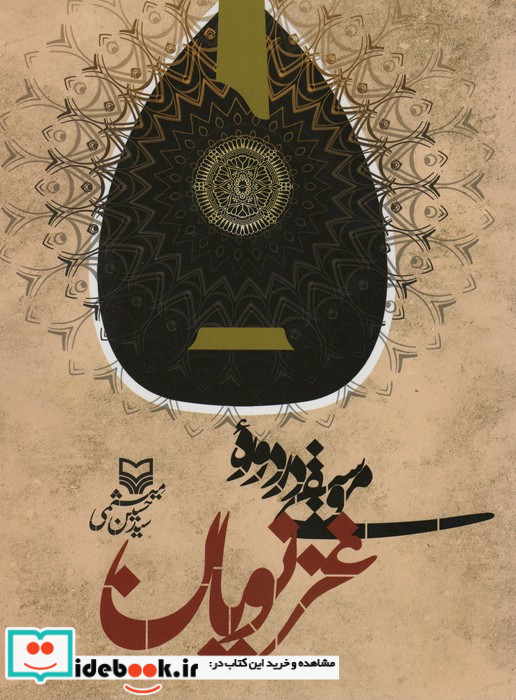 موسیقی در دورهٔ
غزنویان
سید حسین میثمی
idebook.ir
مشاهده و خرید این کتاب در: